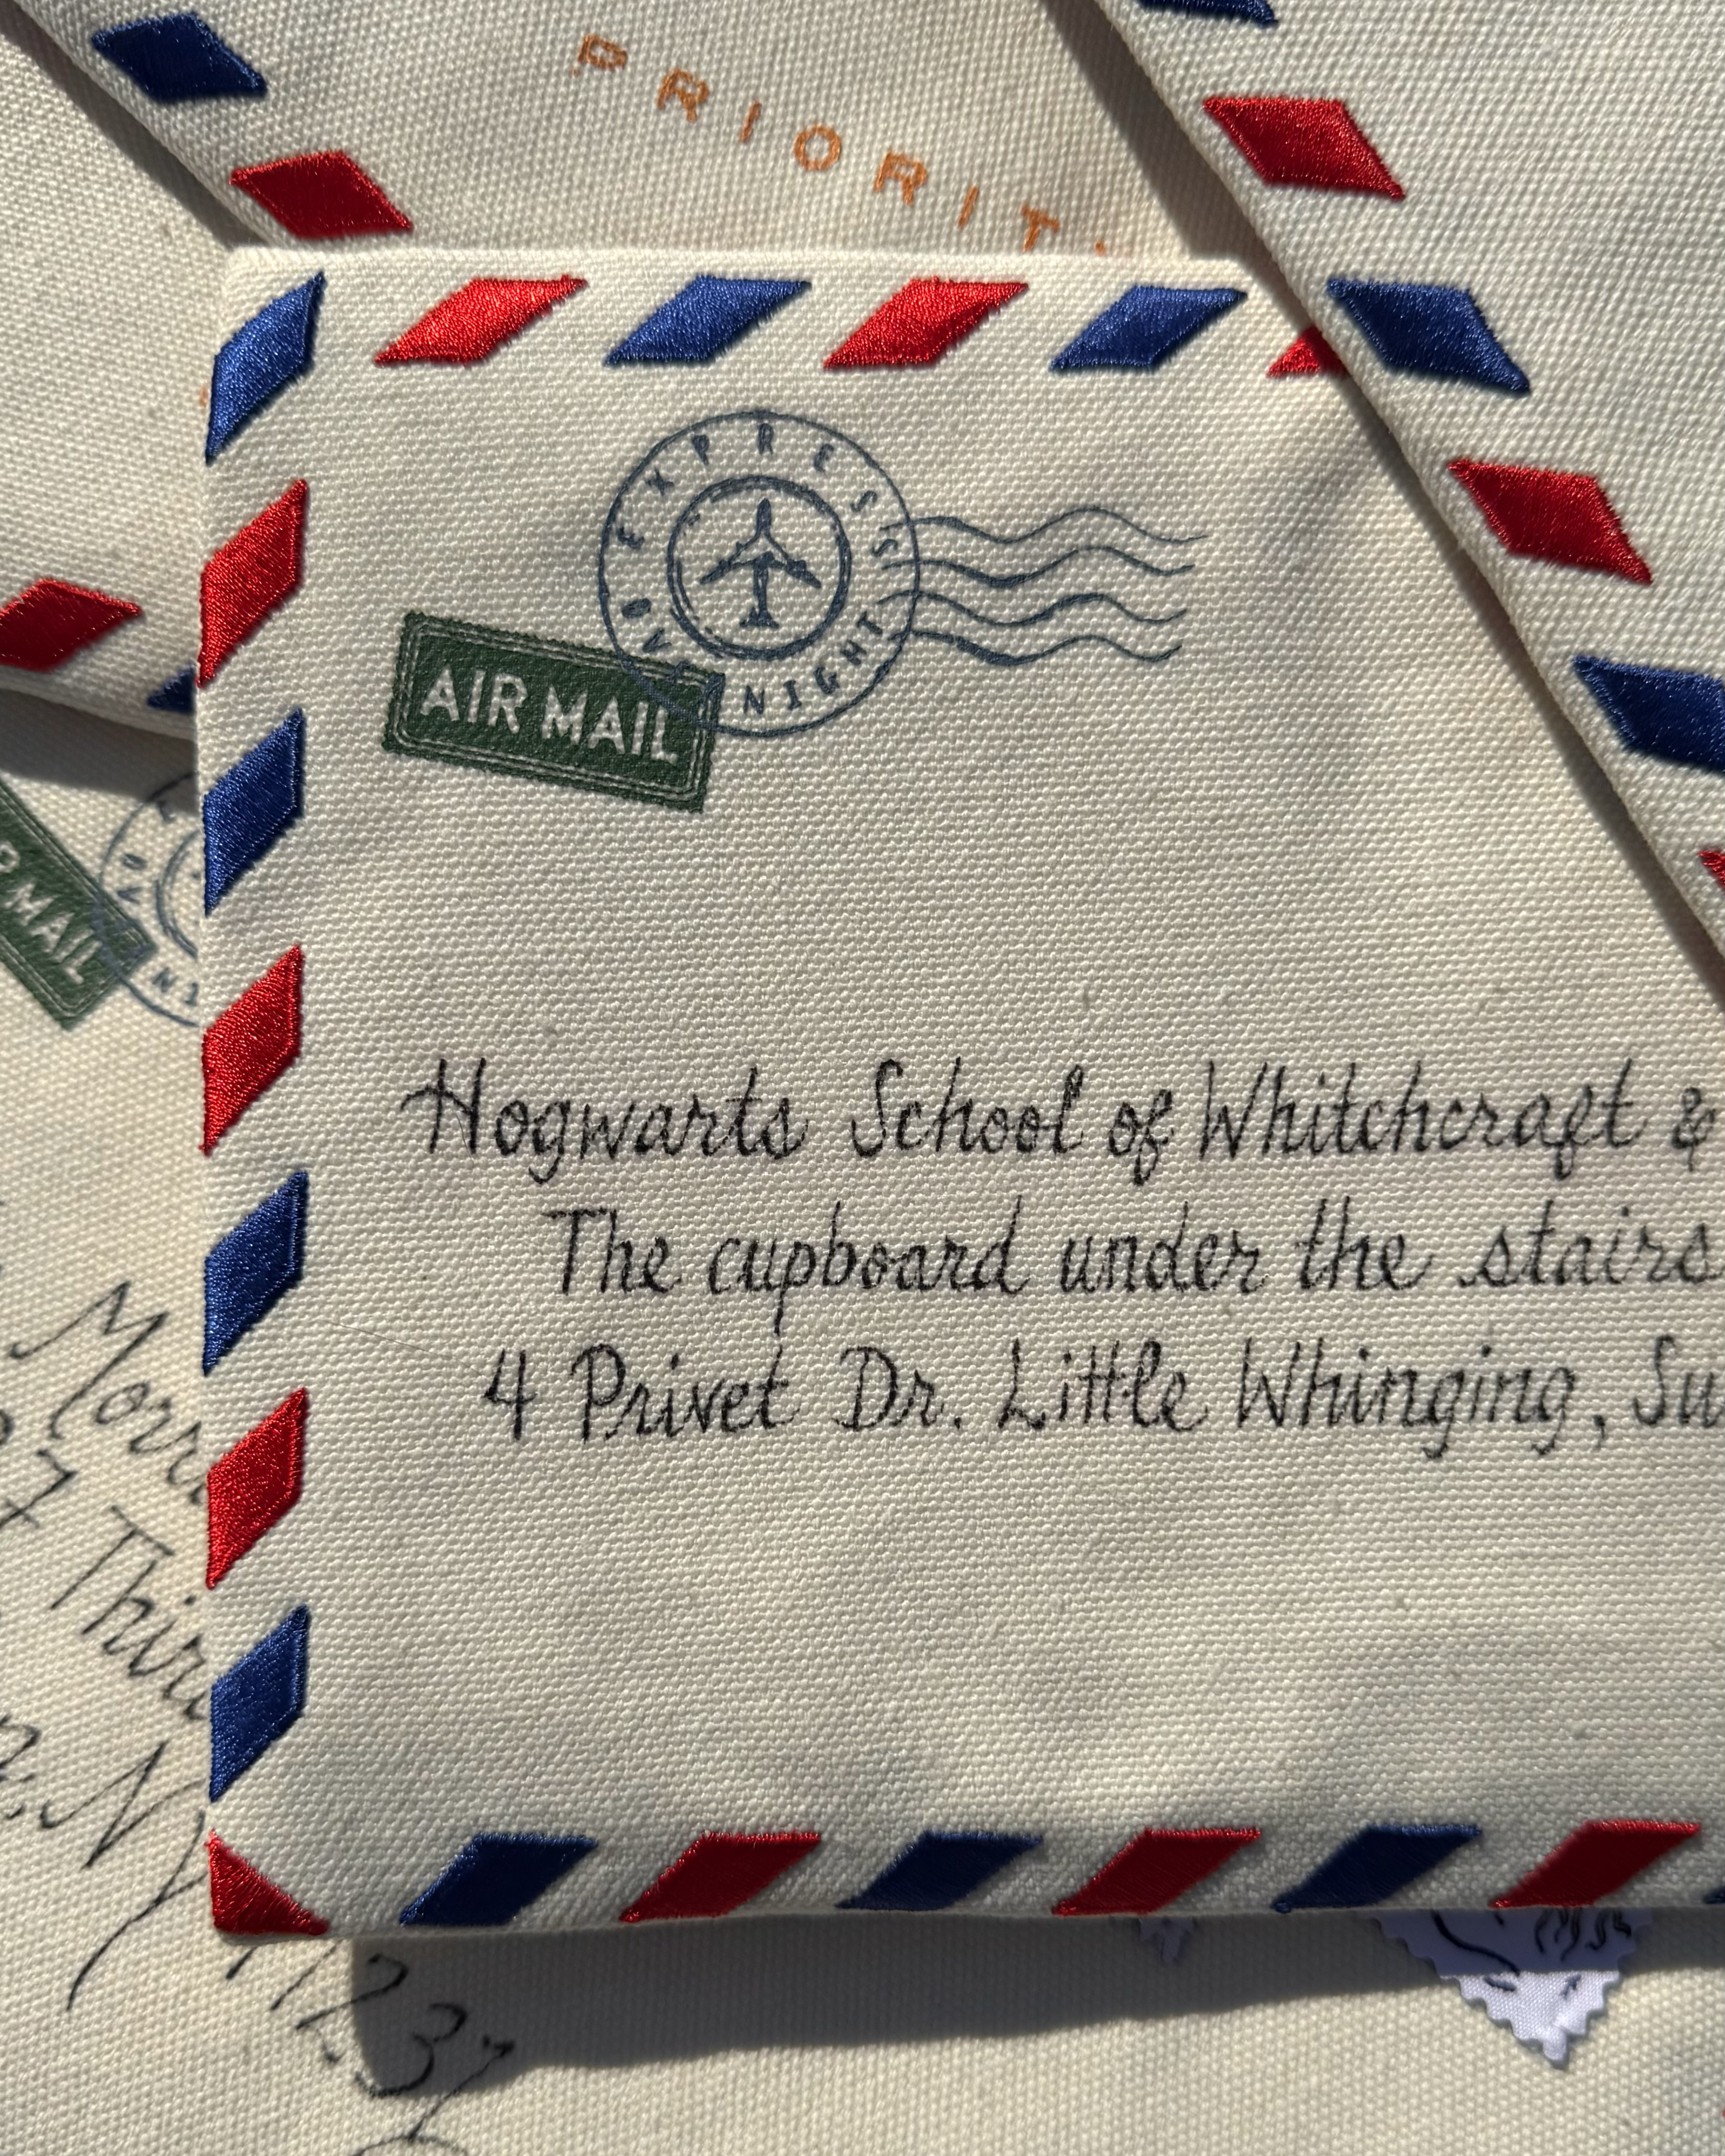 PRIORIT
EXPRESS
OVERNIGHT
AIR MAIL
MAIL
Hogwarts School of Whitchcraft &
The cupboard under the stairs
4 Privet Dr. Little Whinging, Su
Morri
7 Thir
N
1123